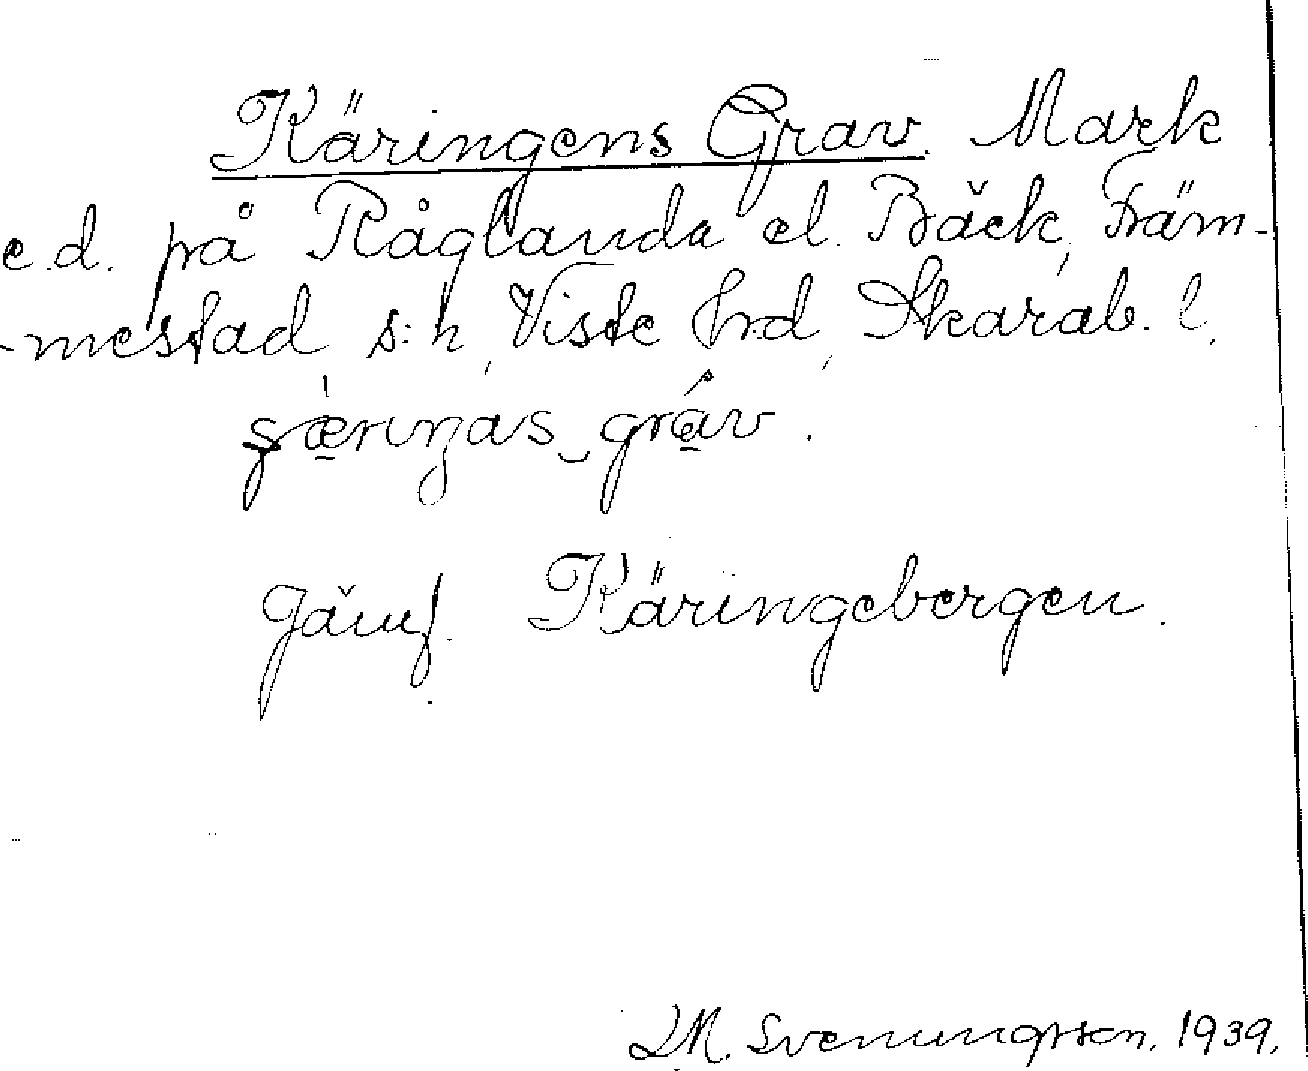 Käringens Grav. Mark
e.d. på Råglanda el. Bäck, Främ-
-mestad s:n, Viste hrd, Skarab. l.
Jämf. Käringebergen.
LM. Svenungsson. 1939.